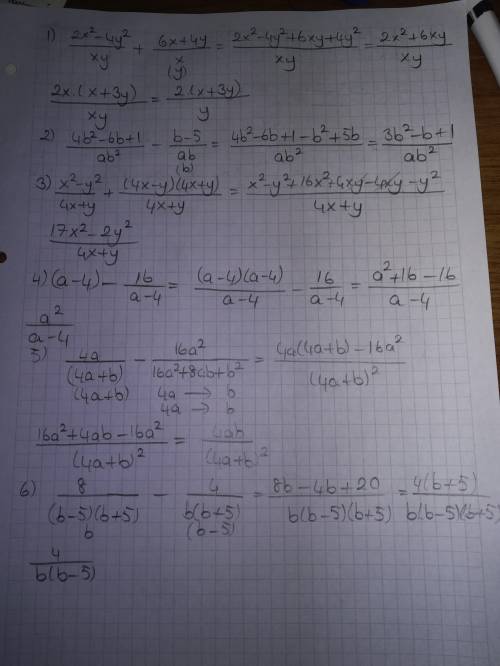 1) (2x²-4y²)/(xy) + (6x+4y)/x (y) = (2x²-4y²+6xy+4y²)/(xy) = (2x²+6xy)/(xy)
(2x·(x+3y))/(xy) = (2·(x+3y))/y
2) (4b²-6b+1)/(ab²) - (b-5)/(ab) (b) = (4b²-6b+1-b²+5b)/(ab²) = (3b²-b+1)/(ab²)
3) (x²-y²)/(4x+y) + ((4x-y)(4x+y))/(4x+y) = (x²-y²+16x²+4xy-4xy-y²)/(4x+y)
(17x²-2y²)/(4x+y)
4) (a-4) - 16/(a-4) = ((a-4)(a-4))/(a-4) - 16/(a-4) = (a²+16-16)/(a-4)
a²/(a-4)
5) 4a/(4a+b) - 16a²/(16a²+8ab+b²) = (4a(4a+b)-16a²)/(4a+b)²
(4a+b) 4a → b
4a → b
(16a²+4ab-16a²)/(4a+b)² = 4ab/(4a+b)²
6) 8/((b-5)(b+5)) - 4/(b(b+5)) = (8b-4b+20)/(b(b-5)(b+5)) = (4(b+5))/(b(b-5)(b+5))
b (b-5)
4/(b(b-5))